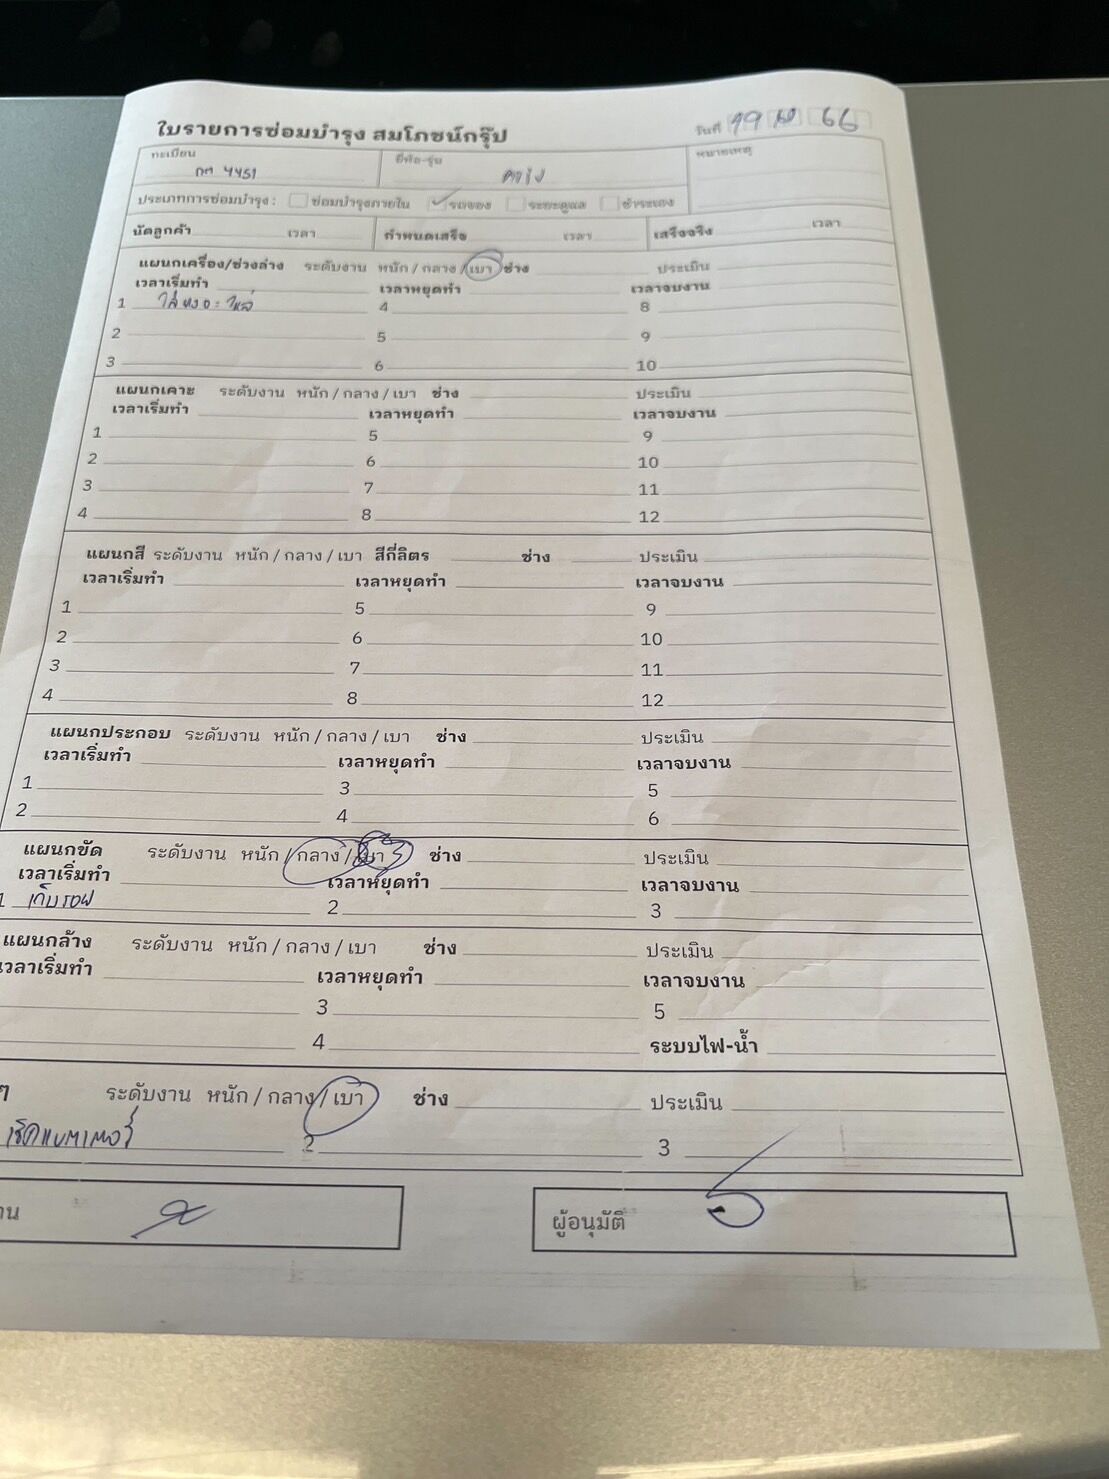 ใบรายการซ่อมบำรุง สมโภชน์กรุ๊ป
วันที่ 19 66
ทะเบียน 4451
ยี่ห้อ-รุ่น
หมายเหตุ
ประเภทการซ่อมบำรุง : ซ่อมบำรุงภายใน รถจอง ระยะดูแล ชำระเอง
นัดลูกค้า เวลา กำหนดเสร็จ เวลา เสร็จจริง เวลา
แผนกเครื่อง/ช่วงล่าง ระดับงาน หนัก / กลาง / เบา ช่าง ประเมิน
เวลาเริ่มทำ เวลาหยุดทำ เวลาจบงาน
1 4 8
2 5 9
3 6 10
แผนกเคาะ ระดับงาน หนัก / กลาง / เบา ช่าง ประเมิน
เวลาเริ่มทำ เวลาหยุดทำ เวลาจบงาน
1 5 9
2 6 10
3 7 11
4 8 12
แผนกสี ระดับงาน หนัก / กลาง / เบา สีกี่ลิตร ช่าง ประเมิน
เวลาเริ่มทำ เวลาหยุดทำ เวลาจบงาน
1 5 9
2 6 10
3 7 11
4 8 12
แผนกประกอบ ระดับงาน หนัก / กลาง / เบา ช่าง ประเมิน
เวลาเริ่มทำ เวลาหยุดทำ เวลาจบงาน
1 3 5
2 4 6
แผนกขัด ระดับงาน หนัก / กลาง / เบา ช่าง ประเมิน
เวลาเริ่มทำ เวลาหยุดทำ เวลาจบงาน
1 เก็บรอย 2 3
แผนกล้าง ระดับงาน หนัก / กลาง / เบา ช่าง ประเมิน
เวลาเริ่มทำ เวลาหยุดทำ เวลาจบงาน
3 5
4 ระบบไฟ-น้ำ
ๆ ระดับงาน หนัก / กลาง / เบา ช่าง ประเมิน
เช็คแบตเตอรี่ 2 3
าน ผู้อนุมัติ